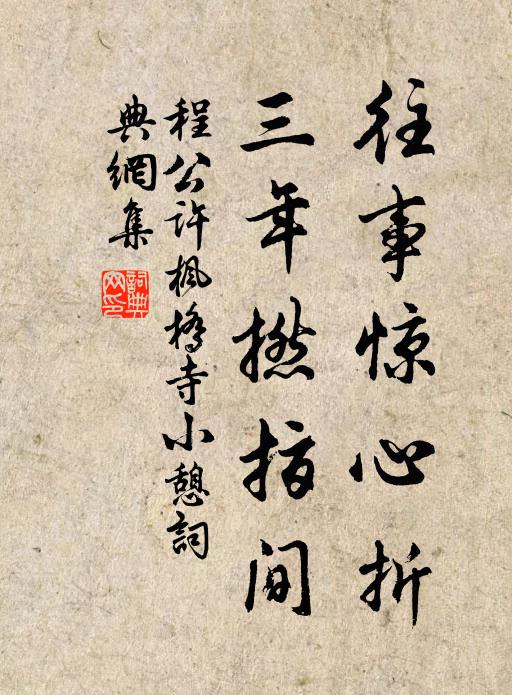 往事惊心折
三年撚指间
程公许枫桥寺小憩詞
典網集
詞典网印